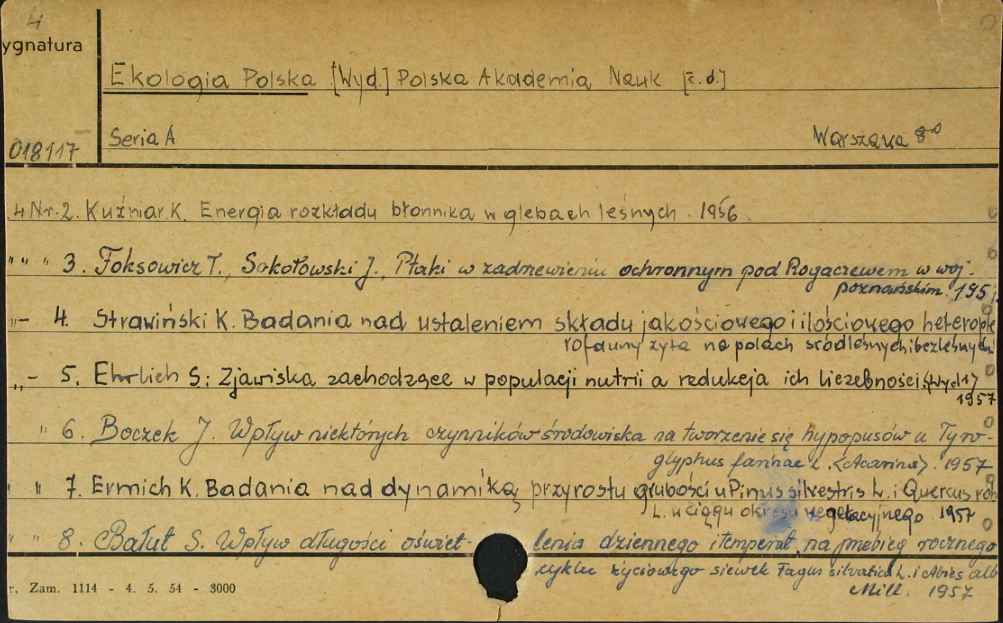 4
ygnatura
Ekologia Polska [Wyd.] Polska Akademia Nauk [č.d.]
Seria A
Warszawa 8°
018117
4 Nr. 2. Kuźniar K. Energia rozkładu błonnika w glebach leśnych. 1956.
" " " 3. Foksowicz T., Sokołowski J., Ptaki w zadrzewieniu ochronnym pod Rogaczewem w woj.
poznańskim. 195
„– 4. Strawiński K. Badania nad ustaleniem składu jakościowego i ilościowego heteropte
rofauny żyta na polach śródleśnych i bezleśnych
„– 5. Ehrlich S: Zjawiska zachodzące w populacji nutrii a redukcja ich liczebności (Wyd 1)
1957
" 6. Boczek J. Wpływ niektórych czynników środowiska na tworzenie się hypopusów u Tyro-
glyphus farinae L. (Acarina). 1957
" " 7. Ermich K. Badania nad dynamiką przyrostu grubości u Pinus silvestris L. i Quercus rob
L. w ciągu okresu wegetacyjnego 1957
" " 8. Bałut S. Wpływ długości oświet- lenia dziennego i temperat. na przebieg rocznego
cyklu życiowego siewek Fagus silvatica L. i Abies alb
Mill. 1957
r. Zam. 1114 - 4. 5. 54 - 3000